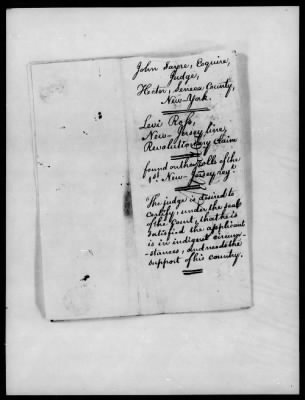 John Sayre, Esquire,
Judge,
Hector, Seneca County,
New-York.
Levi Ross,
New-Jersey line,
Revolutionary Claim
found on the rolls of the
1st. New-Jersey reg.t
The judge is desired to
certify, under the seal
of the Court, that he is
satisfied the applicant
is in indigent circum-
-stances, and needs the
support of his country.